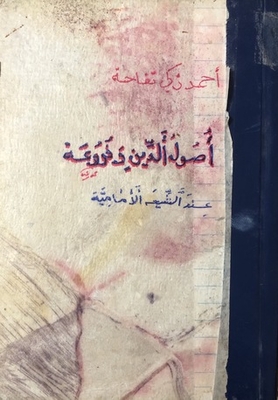 أحمد زكي تفاحة
أُصُولُ الدِّين وَفُرُوعُهُ
عِندَ الشِّيعَةِ الإِمَامِيَّة